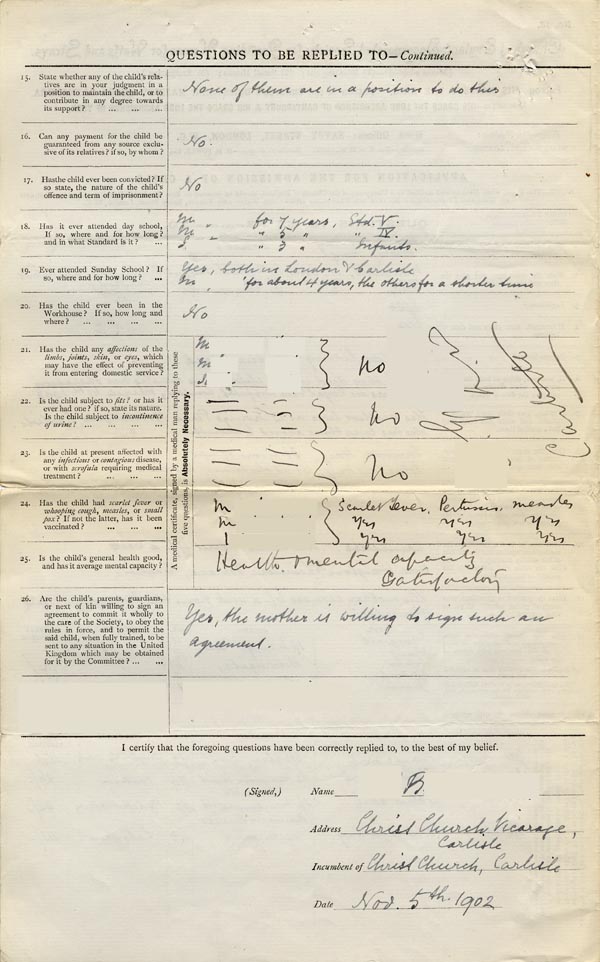 QUESTIONS TO BE REPLIED TO—Continued.
15. State whether any of the child's rela-
tives are in your judgment in a
position to maintain the child, or to
contribute in any degree towards
its support? ... ... ...
None of them are in a position to do this
16. Can any payment for the child be
guaranteed from any source exclu-
sive of its relatives? if so, by whom?
No.
17. Has the child ever been convicted? If
so state, the nature of the child's
offence and term of imprisonment?
No
18. Has it ever attended day school,
If so, where and for how long?
and in what Standard is it? ...
M " for 7 years, Std. V.
M " " 5 " " IV.
" 3 " Infants.
19. Ever attended Sunday School? If
so, where and for how long? ...
Yes, both in London & Carlisle
M for about 4 years, the others for a shorter time
20. Has the child ever been in the
Workhouse? If so, how long and
where? ... ... ... ...
No
A medical certificate, signed by a medical man replying to these
five questions, is Absolutely Necessary.
21. Has the child any affections of the
limbs, joints, skin, or eyes, which
may have the effect of preventing
it from entering domestic service?
M
M
no
22. Is the child subject to fits? or has it
ever had one? if so, state its nature.
Is the child subject to incontinence
of urine? ... ... ... ...
No
23. Is the child at present affected with
any infectious or contagious disease,
or with scrofula requiring medical
treatment? ... ... ...
No
24. Has the child had scarlet fever or
whooping cough, measles, or small
pox? If not the latter, has it been
vaccinated? ... ... ...
Scarlet fever, Pertussis, measles
M
M yes yes yes
yes yes yes
25. Is the child's general health good,
and has it average mental capacity?
Health & mental capacity
Satisfactory
26. Are the child's parents, guardians,
or next of kin willing to sign an
agreement to commit it wholly to
the care of the Society, to obey the
rules in force, and to permit the
said child, when fully trained, to be
sent to any situation in the United
Kingdom which may be obtained
for it by the Committee? ... ...
Yes, the mother is willing to sign such an
agreement.
I certify that the foregoing questions have been correctly replied to, to the best of my belief.
(Signed,) Name B.
Address Christ Church Vicarage,
Carlisle
Incumbent of Christ Church, Carlisle
Date Nov. 5th 1902